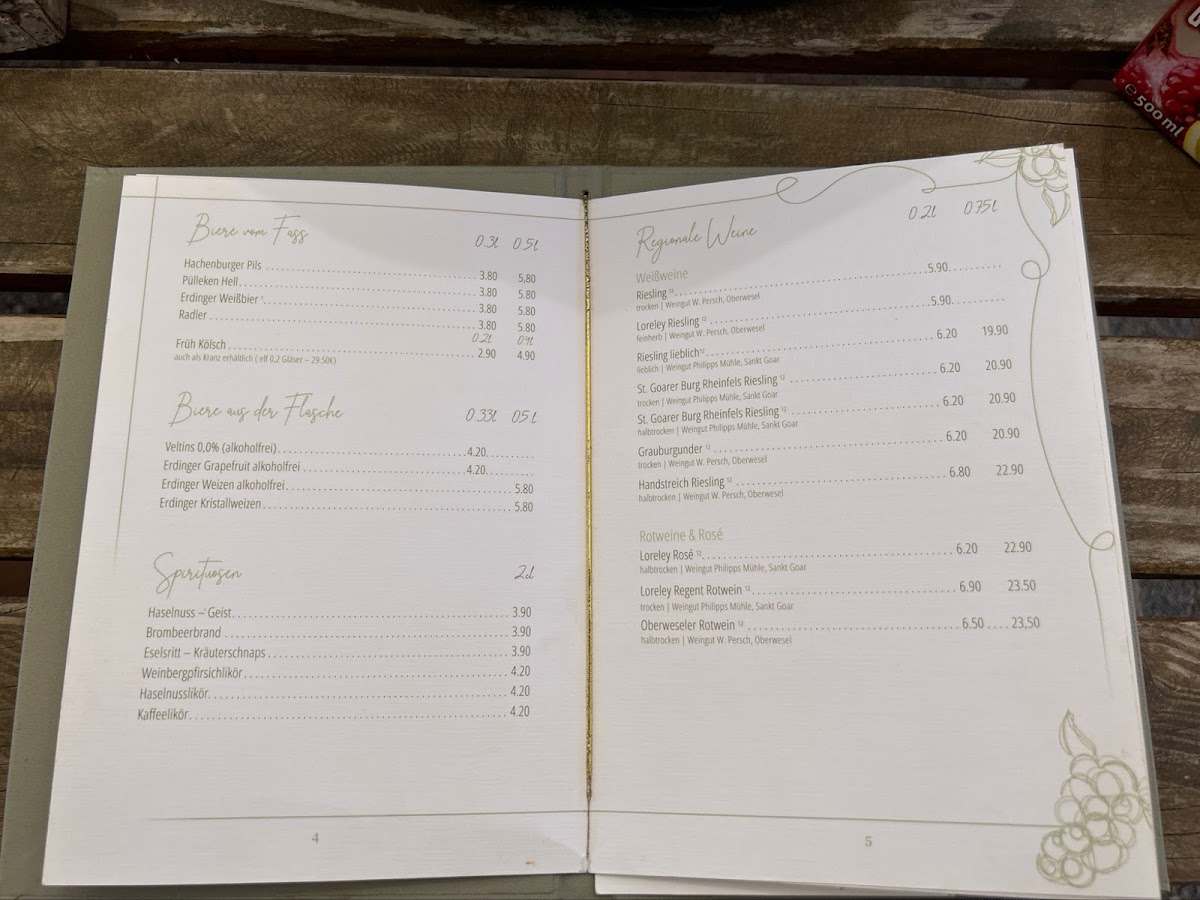 Biere vom Fass 0.3l 0.5l
Hachenburger Pils 3.80 5,80
Pülleken Hell 3.80 5.80
Erdinger Weißbier 3.80 5.80
Radler 3.80 5.80
0.2l 0.4l
Früh Kölsch 2.90 4.90
auch als Kranz erhältlich ( elf 0,2 Gläser – 29.50€)
Biere aus der Flasche 0.33l 0.5 l
Veltins 0,0% (alkoholfrei) 4.20
Erdinger Grapefruit alkoholfrei 4.20
Erdinger Weizen alkoholfrei 5.80
Erdinger Kristallweizen 5.80
Spirituosen 2cl
Haselnuss – Geist 3.90
Brombeerbrand 3.90
Eselsritt – Kräuterschnaps 3.90
Weinbergpfirsichlikör 4.20
Haselnusslikör 4.20
Kaffeelikör 4.20
4
Regionale Weine 0.2l 0.75l
Weißweine
Riesling 12 5.90
trocken | Weingut W. Persch, Oberwesel
Loreley Riesling 12 5.90
feinherb | Weingut W. Persch, Oberwesel
Riesling lieblich 12 6.20 19.90
lieblich | Weingut Philipps Mühle, Sankt Goar
St. Goarer Burg Rheinfels Riesling 12 6.20 20.90
trocken | Weingut Philipps Mühle, Sankt Goar
St. Goarer Burg Rheinfels Riesling 12 6.20 20.90
halbtrocken | Weingut Philipps Mühle, Sankt Goar
Grauburgunder 12 6.20 20.90
trocken | Weingut W. Persch, Oberwesel
Handstreich Riesling 12 6.80 22.90
halbtrocken | Weingut W. Persch, Oberwesel
Rotweine & Rosé
Loreley Rosé 12 6.20 22.90
halbtrocken | Weingut Philipps Mühle, Sankt Goar
Loreley Regent Rotwein 12 6.90 23.50
trocken | Weingut Philipps Mühle, Sankt Goar
Oberweseler Rotwein 12 6.50 23,50
halbtrocken | Weingut W. Persch, Oberwesel
5
e 500 ml